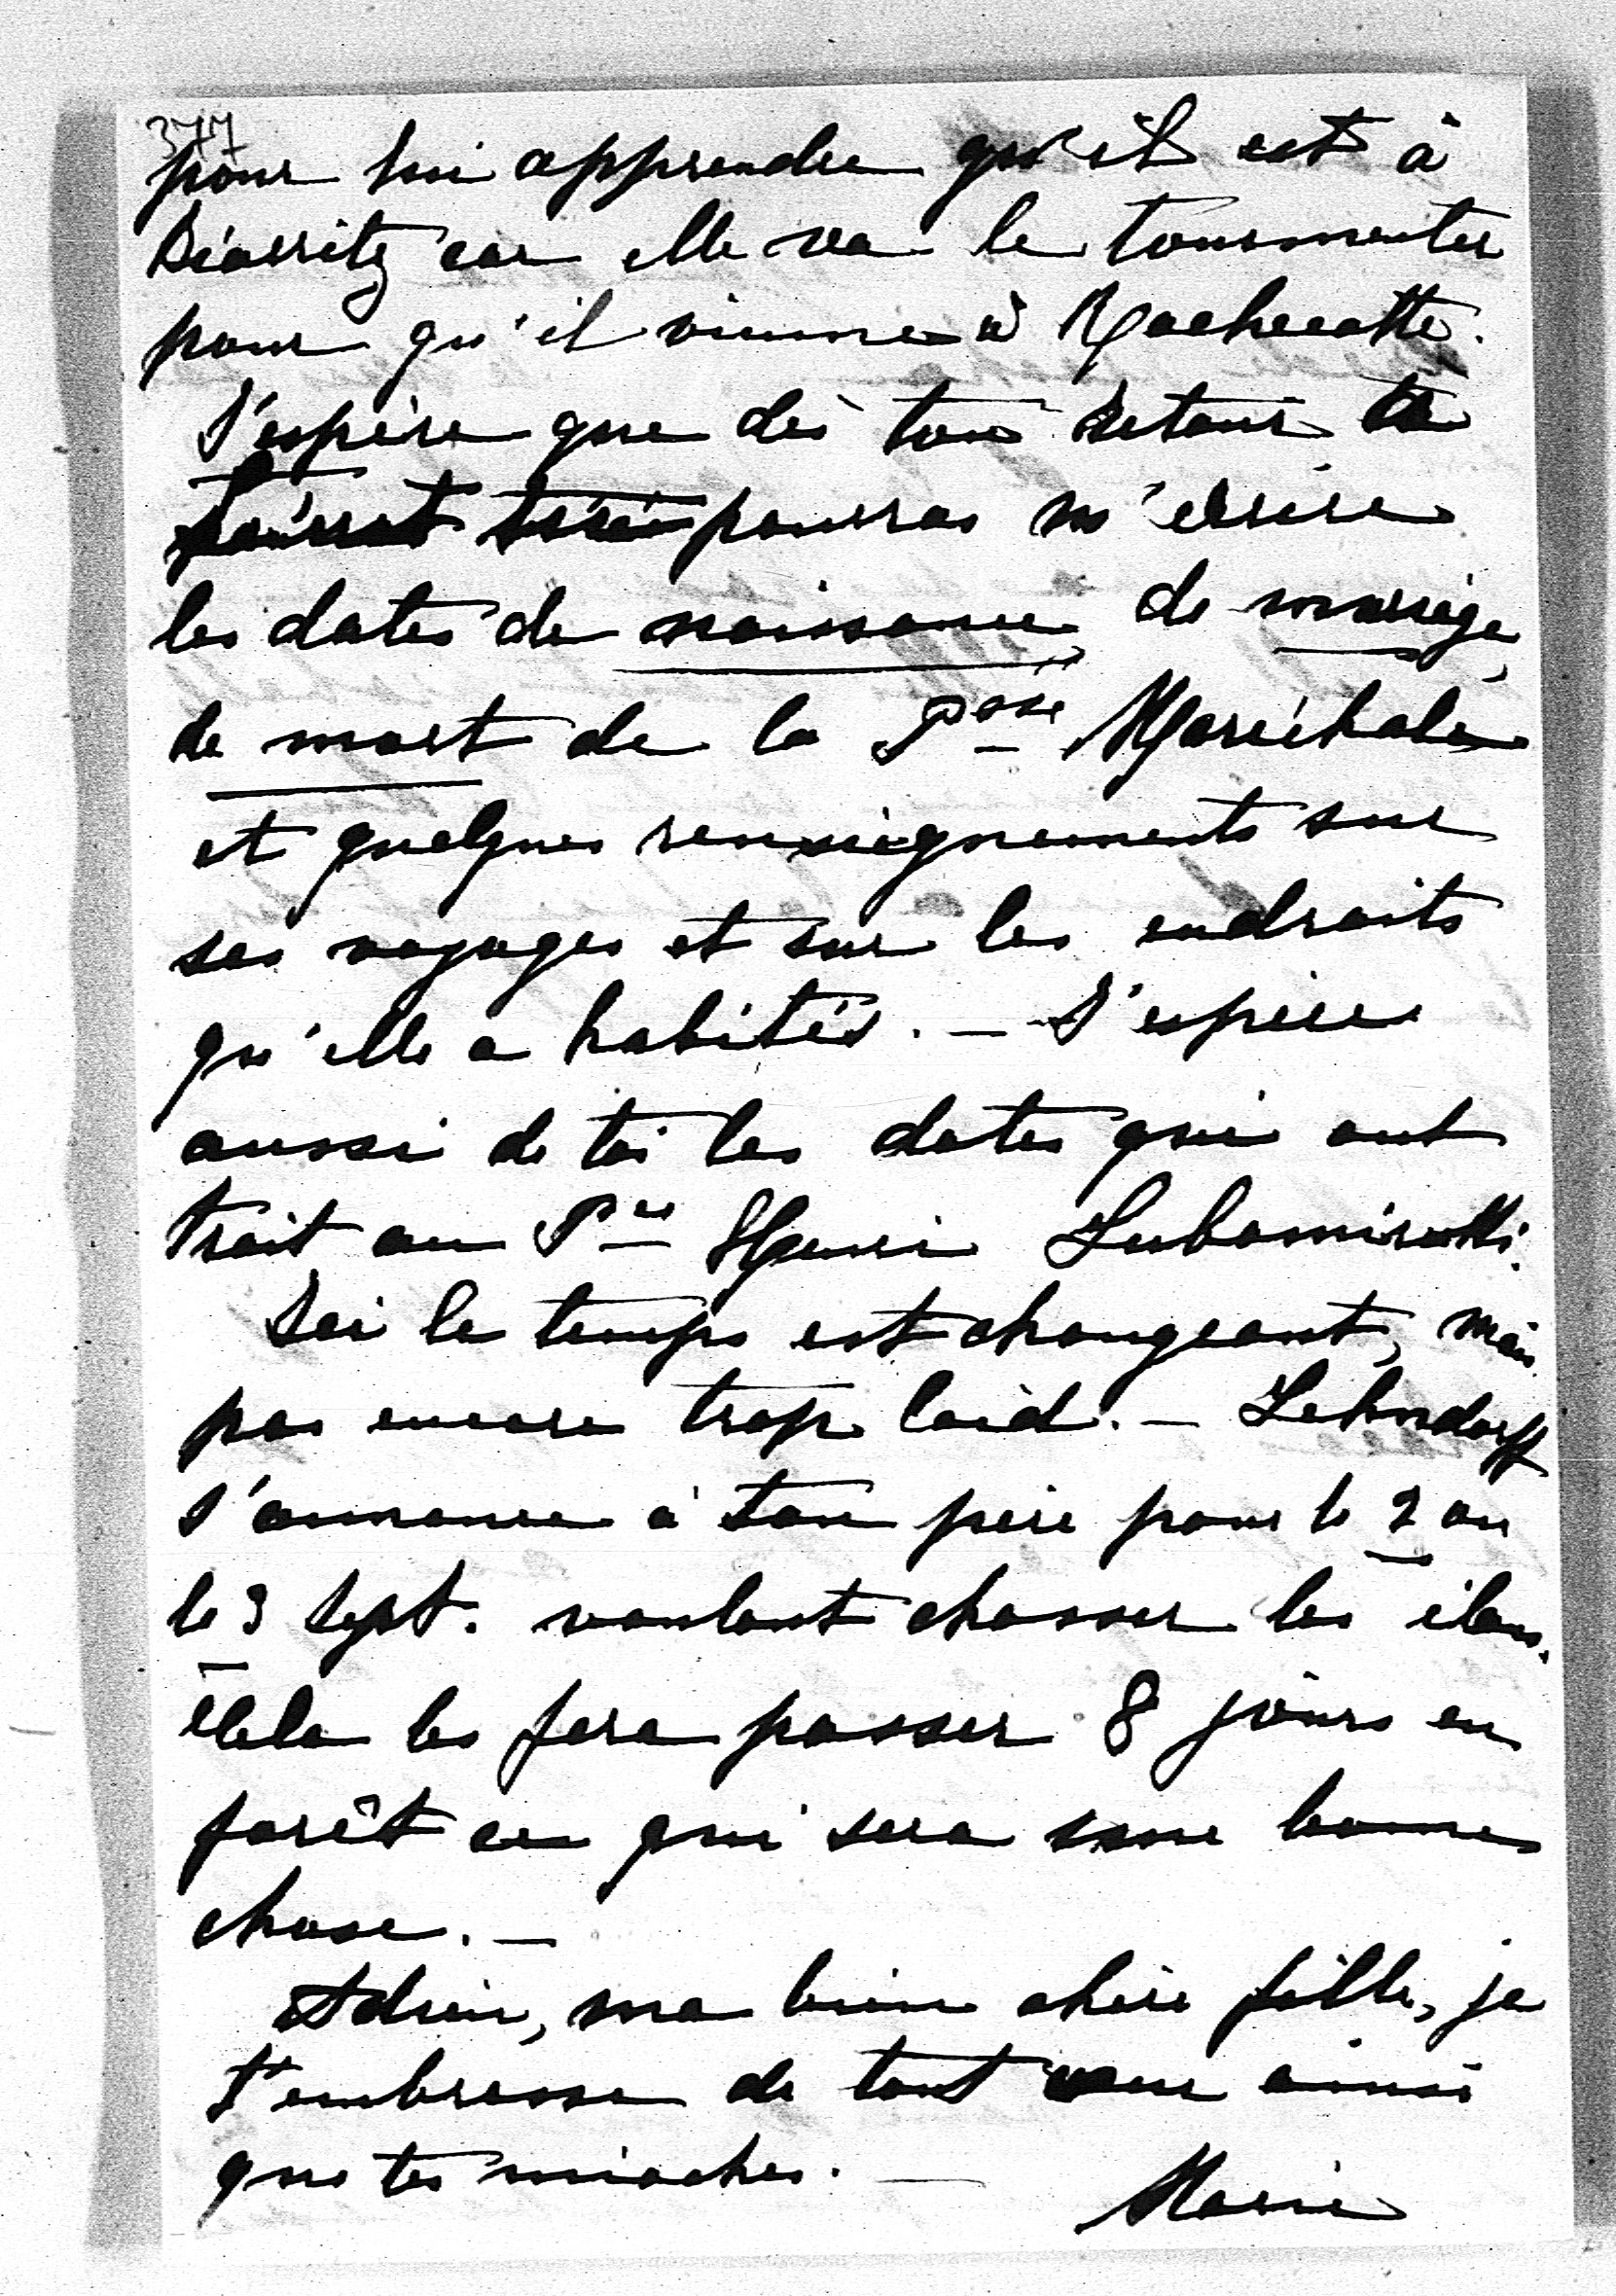 377
pour lui apprendre qu'il est à
Biarritz car elle va le tourmenter
pour qu'il vienne à Rochecotte.
J'espère que dès ton retour tu
pourras m'écrire
les dates de naissance de mariage,
de mort de la Psse Maréchale
et quelques renseignements sur
ses voyages et sur les endroits
qu'elle a habités. — J'espère
aussi de toi les dates qui ont
trait au Pce Henri Lubomirski.
Ici le temps est changeant, mais
pas encore trop laid. — Lehndorff
s'annonce à ton père pour le 2 ou
le 3 Sept. voulant chasser les élans.
Cela les fera passer 8 jours en
forêt ce qui sera une bonne
chose. —
Adieu, ma bien chère fille, je
t'embrasse de tout cœur ainsi
que tes mioches. —
Marie